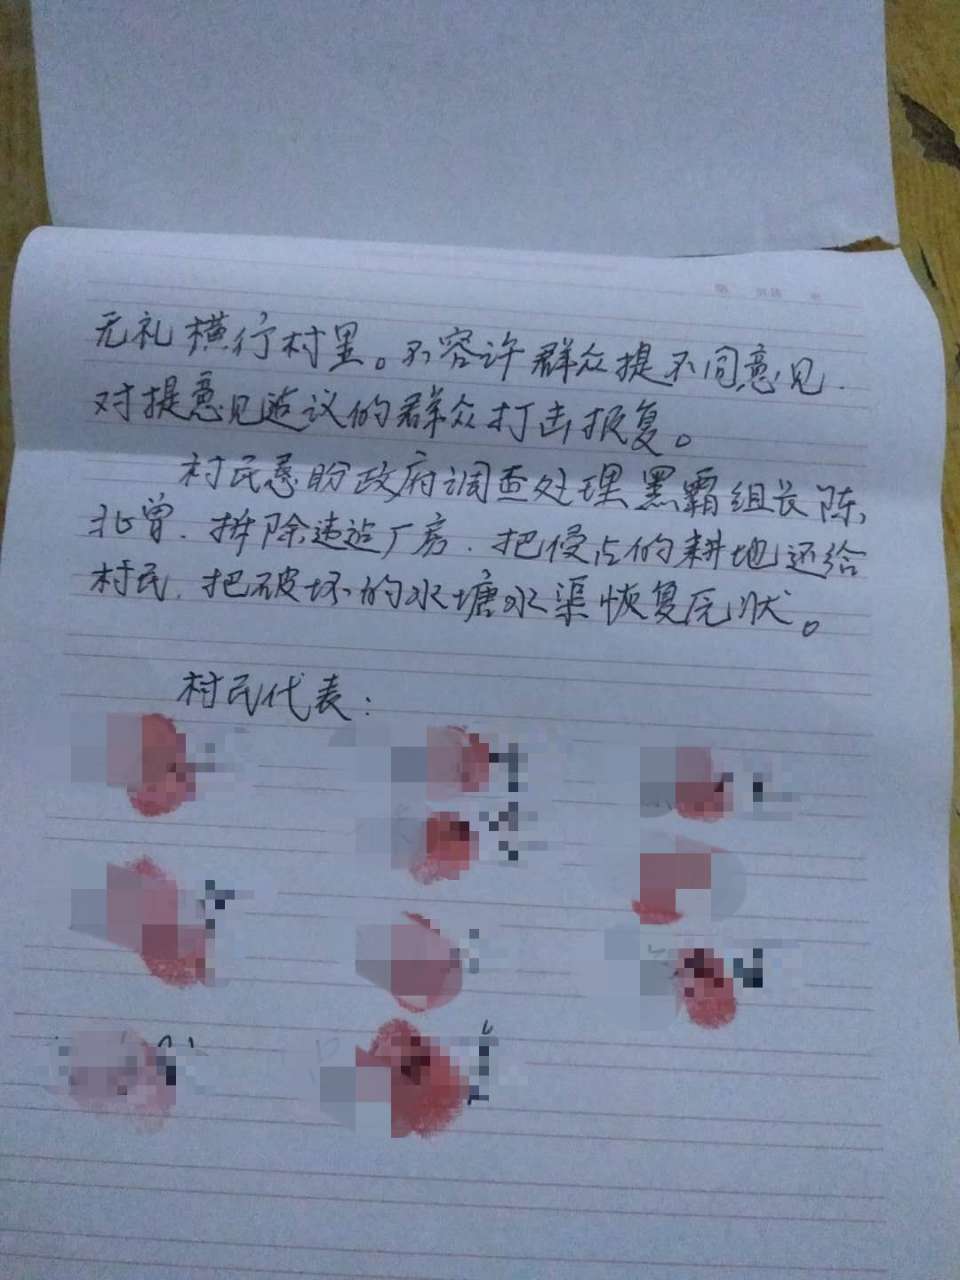 无礼横行村里。不容许群众提不同意见.
对提意见造议的群众打击报复。
村民恳盼政府调查处理黑霸组长陈
北曾.拆除违造厂房.把侵占的耕地还给
村民.把破坏的水塘水渠恢复原状。
村民代表：